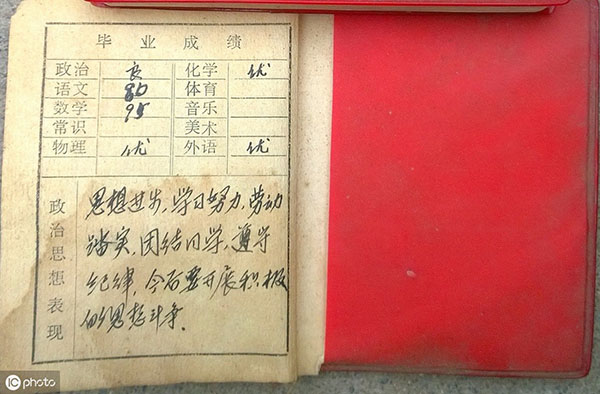 毕业成绩
政治 良 化学 优
语文 80 体育
数学 95 音乐
常识 美术
物理 优 外语 优
政治思想表现
思想进步,学习努力,劳动
踏实,团结同学,遵守
纪律,今后要开展积极
的思想斗争.
IC photo